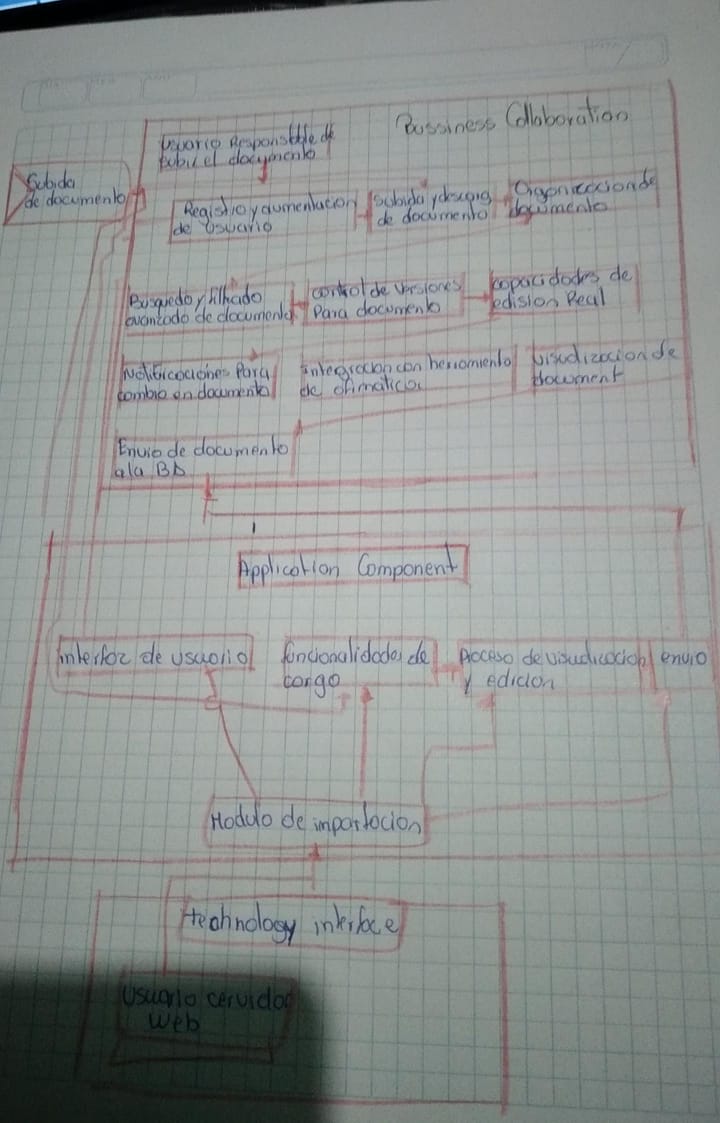 Bussiness Collaboration
Usuario Responsable de
subir el documento
Subida
de documento
Registro y aumentacion
de usuario
Subida y descarg
de documento
Organizacion de
documento
Busquedo y filtrado
avanzado de documento
control de versiones
Para documento
capacidades de
edision Real
Notificaciones Para
cambio en documento
integracion con herramienta
de ofimatica
visualizacion de
document
Envio de documento
a la BD
Application Component
interfaz de usuario
funcionalidades de
cargo
proceso de visualizacion
y edicion
envio
Modulo de importacion
technology interface
Usuario cervidor
web